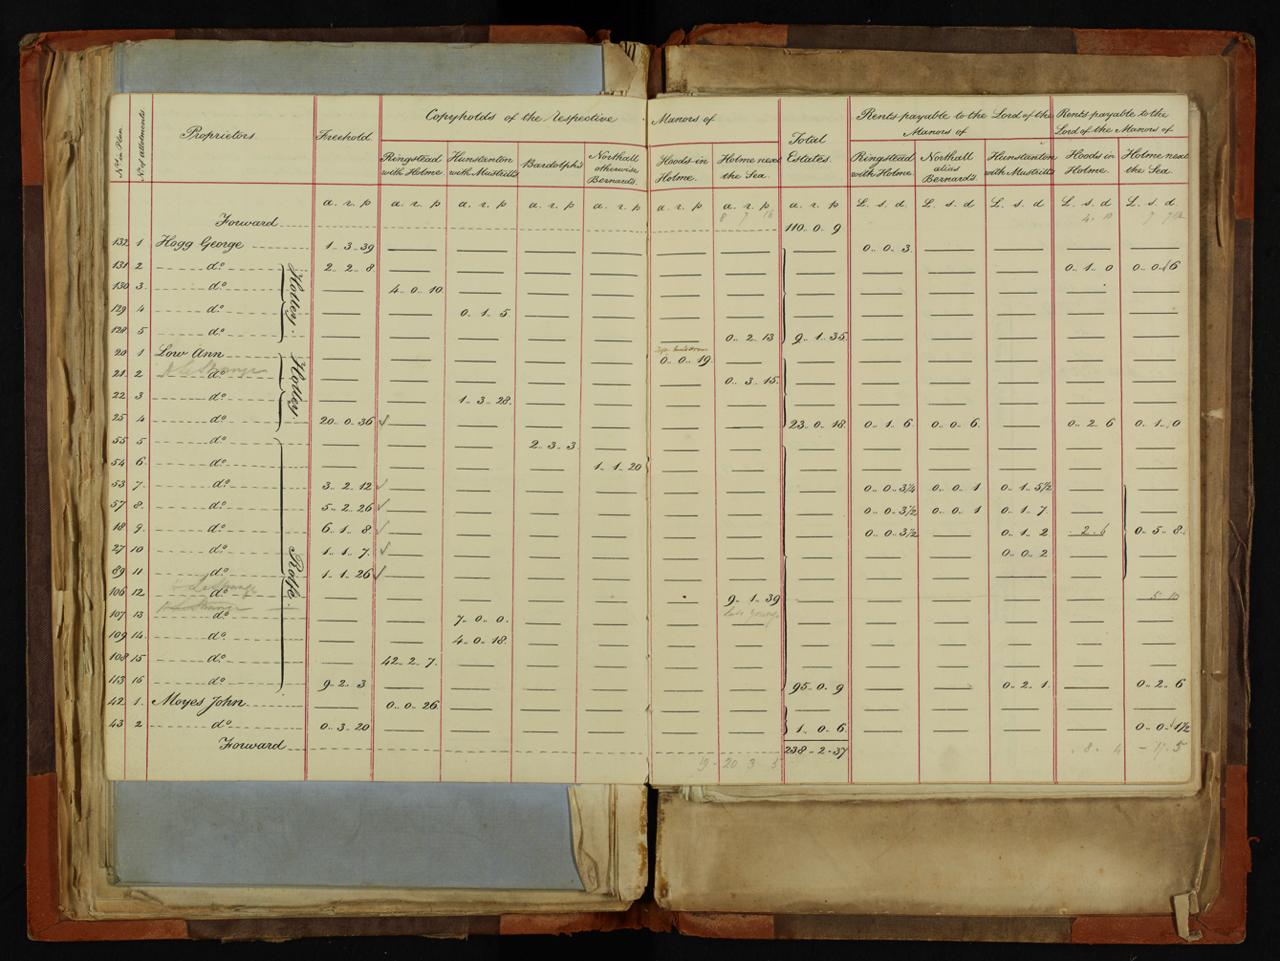 Copyholds of the respective Manors of
Rents payable to the Lord of the Manors of
Rents payable to the Lord of the Manors of
No. in Plan. No. of allotments Proprietors Freehold Ringstead with Holme. Hunstanton with Mustrells Bardolph's Northall otherwise Bernards. Hoods in Holme. Holme next the Sea. Total Estates. Ringstead with Holme. Northall alias Bernards. Hunstanton with Mustrells Hoods in Holme. Holme next the Sea.
a. r. p a. r. p a. r. p a. r. p a. r. p a. r. p a. r. p a. r. p £. s. d £. s. d £. s. d £. s. d £. s. d
8 7 18
Forward 110..0..9
132 1 Hogg George 1..3..39 — — — — — — 0..0..3 — — — —
131 2 do. 2..2..8 — — — — — — — — — 0..1..0 0..0..6
130 3 do. — 4..0..10 — — — — — — — — —
129 4 do. — — 0..1..5 — — — — — — — —
128 5 do. — — — — — — 0..2..13 9..1..35 — — — — —
Holley.
20 1 Low Ann — — — — — 0..0..19 — — — — — — —
21 2 do. — — — — — — 0..3..15 — — — — — —
22 3 do. — — 1..3..28 — — — — — — — — — —
25 4 do. 20..0..36 ✓ — — — — — — 23..0..18 0..1..6 0..0..6 — 0..2..6 0..1..0
Holley.
55 5 do. — — — 2..3..3 — — — — — — — — —
54 6 do. — — — — 1..1..20 — — — — — — — —
53 7 do. 3..2..12 ✓ — — — — — — — 0..0..3¼ 0..0..1 0..1..5½ —
57 8 do. 5..2..26 ✓ — — — — — — — 0..0..3½ 0..0..1 0..1..7 —
18 9 do. 6..1..8 ✓ — — — — — — — 0..0..3½ — 0..1..2 2..6 0..5..8
27 10 do. 1..1..7 ✓ — — — — — — — — — 0..0..2 —
89 11 do. 1..1..26 ✓ — — — — — — — — — — —
106 12 do. — — — — — — 9..1..39 — — — — — 5 10
107 13 do. — — 7..0..0 — — — — — — — — — —
109 14 do. — — 4..0..18 — — — — — — — — — —
108 15 do. — 42..2..7 — — — — — — — — — — —
113 16 do. 9..2..3 — — — — — — 95..0..9 — — 0..2..1 — 0..2..6
Rolfe.
42 1 Moyes John — 0..0..26 — — — — — — — — — — —
43 2 do. 0..3..20 — — — — — — 1..0..6 — — — — 0..0..1½
Forward 238..2..37
8 - 4
19 - 20 3 5